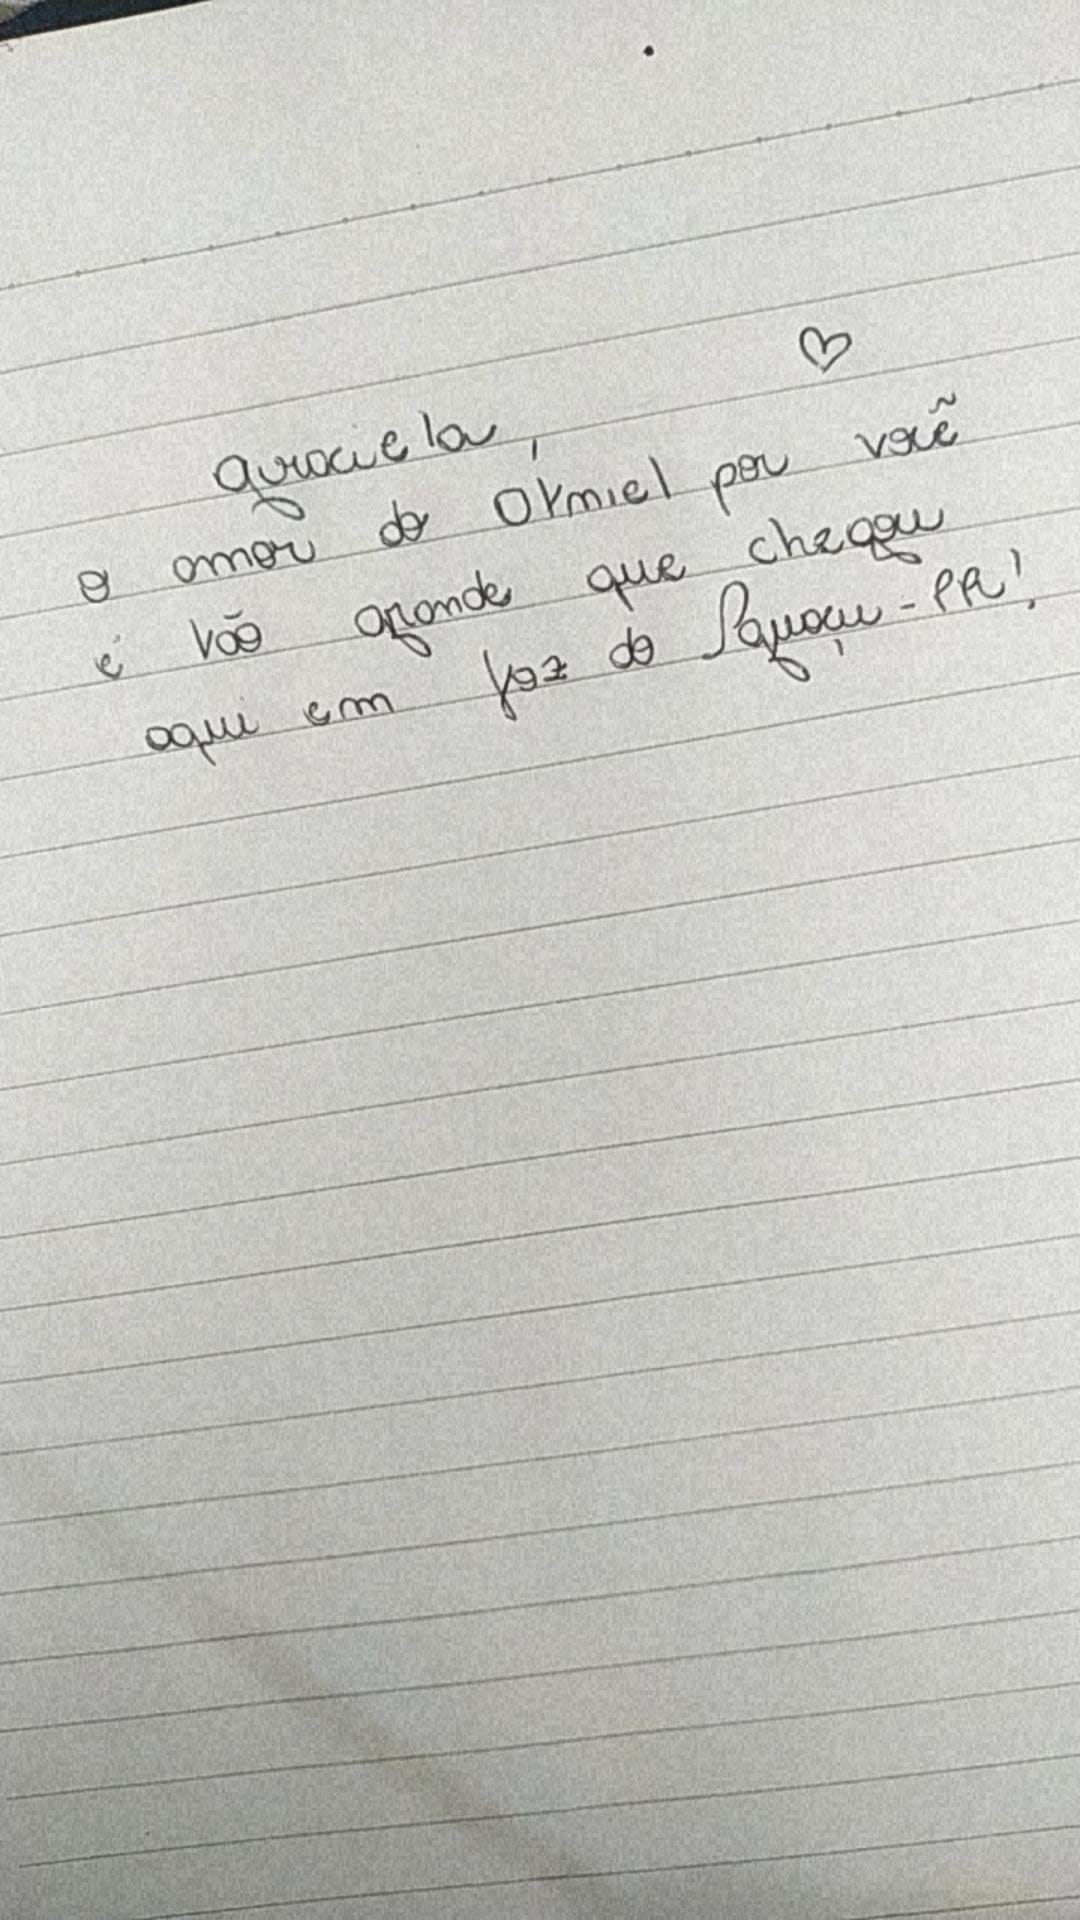 ♡
Graciela,
o amor do Otmiel por você
é tão grande que chegou
aqui em Foz do Iguaçu - PR!